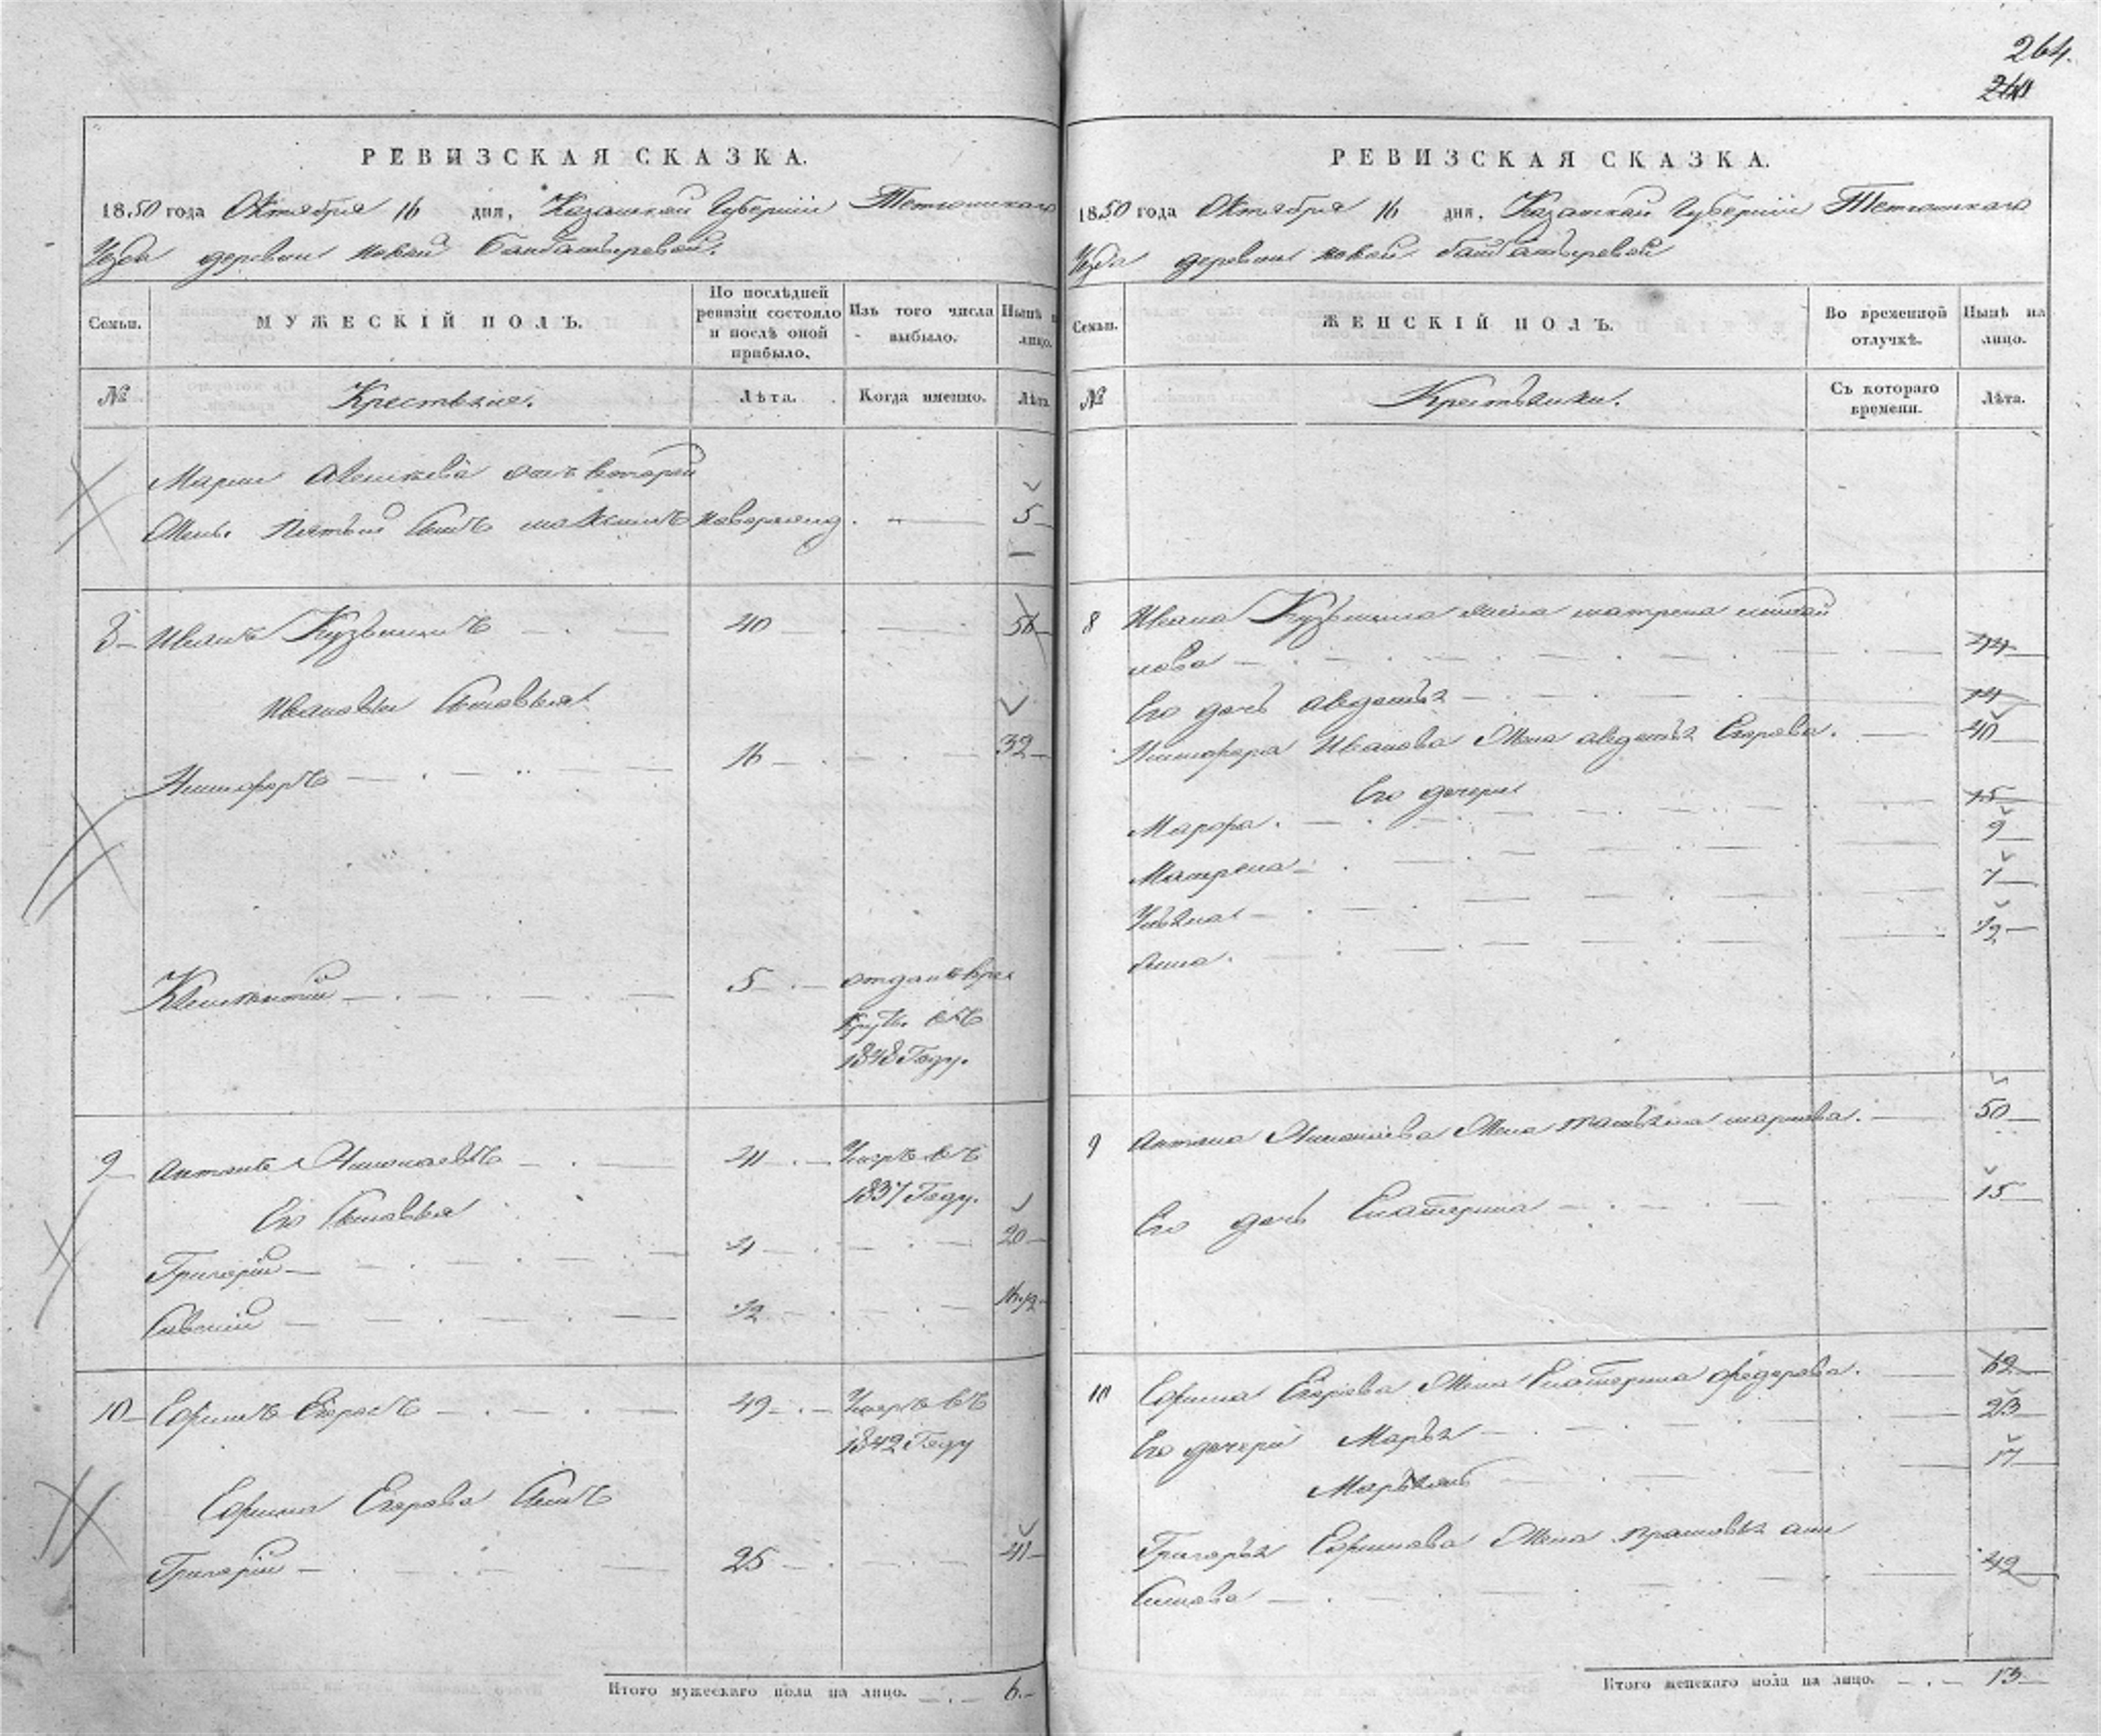 264.
260
РЕВИЗСКАЯ СКАЗКА.
1850 года Октября 16 дня, Казанской Губернiи Тетюшскаго
Уезда деревни новой Байбатыревой.
Семьи.
МУЖЕСКIЙ ПОЛЪ.
По послѣдней ревизiи состояло и послѣ оной прибыло.
Изъ того числа выбыло.
Нынѣ на лицо.
№
Крестьяне.
Лѣта.
Когда именно.
Лѣта.
отъ второй
Жены Пятый Сынъ 5
8 Иванъ Кузьминъ 40 56
Ивановы Сыновья
Никифоръ 16 32
5 отданъ в
рекруты въ
1848 Году.
9 Антонъ Николаевъ 41 Умеръ въ
1837 Году.
Его Сыновья
Григорiй 4 20
Савелiй 1/2 16 1/2
10 Ефимъ Егоровъ 49 Умеръ въ
1842 Году
Ефима Егорова Сынъ
Григорiй 25 41
Итого мужескаго пола на лицо. 6.
РЕВИЗСКАЯ СКАЗКА.
1850 года Октября 16 дня, Казанской Губернiи Тетюшскаго
Уезда деревни новой Байбатыревой
Семьи.
ЖЕНСКIЙ ПОЛЪ.
Во временной отлучкѣ.
Нынѣ на лицо.
№
Крестьянки.
Съ котораго времени.
Лѣта.
8 Ивана Кузьмина жена матрена
44
Его дочь авдотья 14
Никифора Иванова Жена авдотья Егорова. 40
Его дочери
Марфа. 15
Матрена 9
Ульяна 7
Анна. 1/2
9 Антона Николаева Жена татьяна маркова. 50
Его дочь Екатерина 15
10 Ефима Егорова Жена Екатерина федорова. 62
Его дочери Марья 23
17
Григорья Ефимова Жена прасковья
42
Итого женскаго пола на лицо. 13